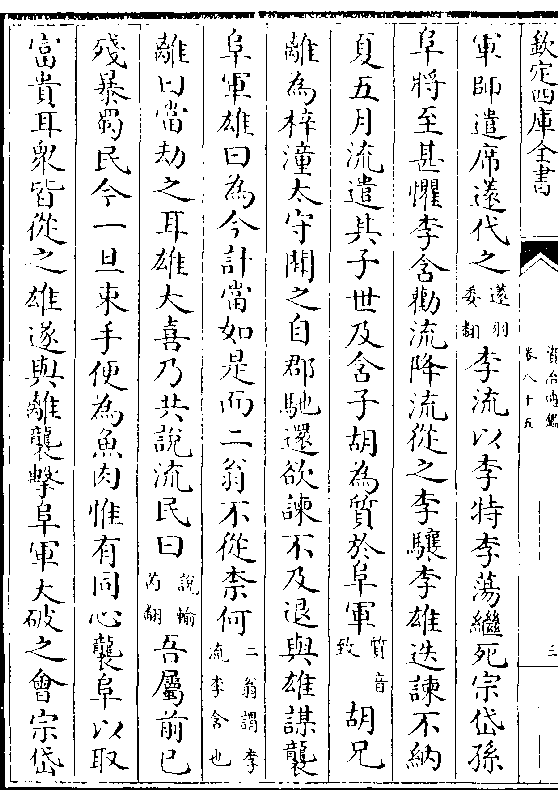 欽定四庫全書
資治通鑑
卷八十五
三
軍師遣席薳代之薳羽委翻李流以李特李蕩繼死宗岱孫
阜將至甚懼李含勸流降流從之李驤李雄迭諫不納
夏五月流遣其子世及含子胡為質於阜軍質音致胡兄
離為梓潼太守聞之自郡馳還欲諫不及退與雄謀襲
阜軍雄曰為今計當如是而二翁不從柰何二翁謂李流李含也
離曰當劫之耳雄大喜乃共說流民曰說輸芮翻吾屬前已
殘暴蜀民今一旦束手便為魚肉惟有同心襲阜以取
富貴耳衆皆從之雄遂與離襲擊阜軍大破之會宗岱